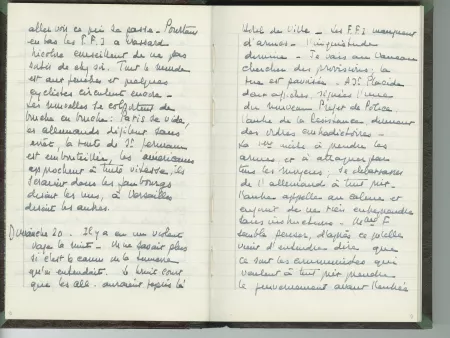 aller voir ce qui se passe - Pourtant
en bas les F.F.I à brassard
tricolore conseillent de ne pas
sortir de chez soi. Tout le monde
est aux fenêtres et quelques
cyclistes circulent encore -
Les nouvelles se colportent de
bouche en bouche: Paris se vide,
les allemands défilent sans
arrêt, la route de St Germain
est embouteillée, les américains
approchent à toute vitesse, ils
seraient dans les faubourgs
disent les uns, à Versailles
disent les autres.
Dimanche 20. Il y a eu un violent
orage la nuit - On ne savait plus
si c'est le canon ou le tonnerre
qu'on entendait. Le bruit court
que les all. auraient repris l'
Hôtel de Ville - Les F.F.I manquent
d'armes - L'inquiétude
domine - Je vais au
chercher des provisions; la
rue est pavoisée - A St Placide
deux affiches, signées l'une
du nouveau Préfet de Police
l'autre de la Résistance donnent
des ordres contradictoires -
La 1ère incite à prendre les
armes, et à attaquer par
tous les moyens, se débarrasser
de l'allemand à tout prix.
L'autre appelle au calme et
enjoint de ne rien entreprendre
sans instructions.
semble penser, d'après ce qu'elle
vient d'entendre dire que
ce sont les communistes qui
veulent à tout prix prendre
le gouvernement avant l'arrivée